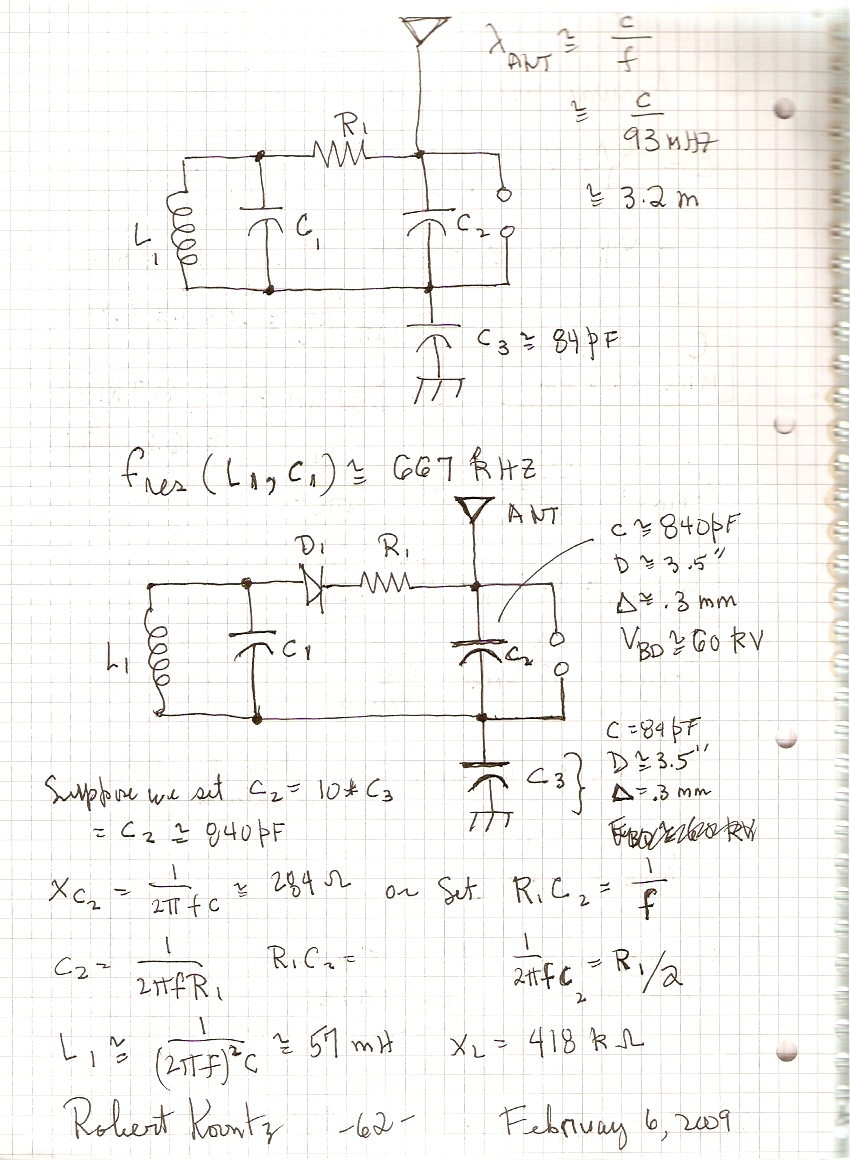 λ ANT ≅ c/f
≅ c/93 MHZ
≅ 3.2 m
R1
L1
C1
C2
C3 ≅ 84 pF
fres (L1, C1) ≅ 667 kHZ
ANT
D1
R1
L1
C1
C2
C ≅ 840pF
D ≅ 3.5"
Δ ≅ .3 mm
VBD ≅ 60 kV
C3
C = 84 pF
D ≅ 3.5"
Δ = .3 mm
Suppose we set C2 = 10 * C3
= C2 ≅ 840 pF
XC2 = 1/2πfC ≅ 284 Ω or Set R1C2 = 1/f
C2 = 1/2πfR1 R1C2 = 1/2πfC2 = R1/2
L1 ≅ 1/(2πf)²C ≅ 57 mH XL = 418 kΩ
Robert Koontz -62- February 6, 2009